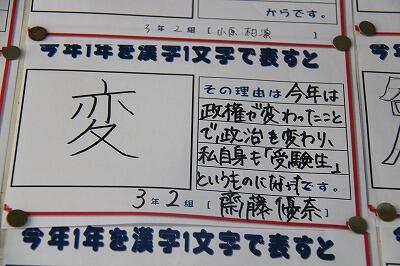 からです。
3年2組 [小原 相湧]
今年1年を漢字1文字で表すと
変
その理由は今年は
政権が変わったこと
で、政治を変わり、
私自身も「受験生」
というものになったです。
3年2組 [齋藤優奈]
今年1年を漢字1文字で表すと